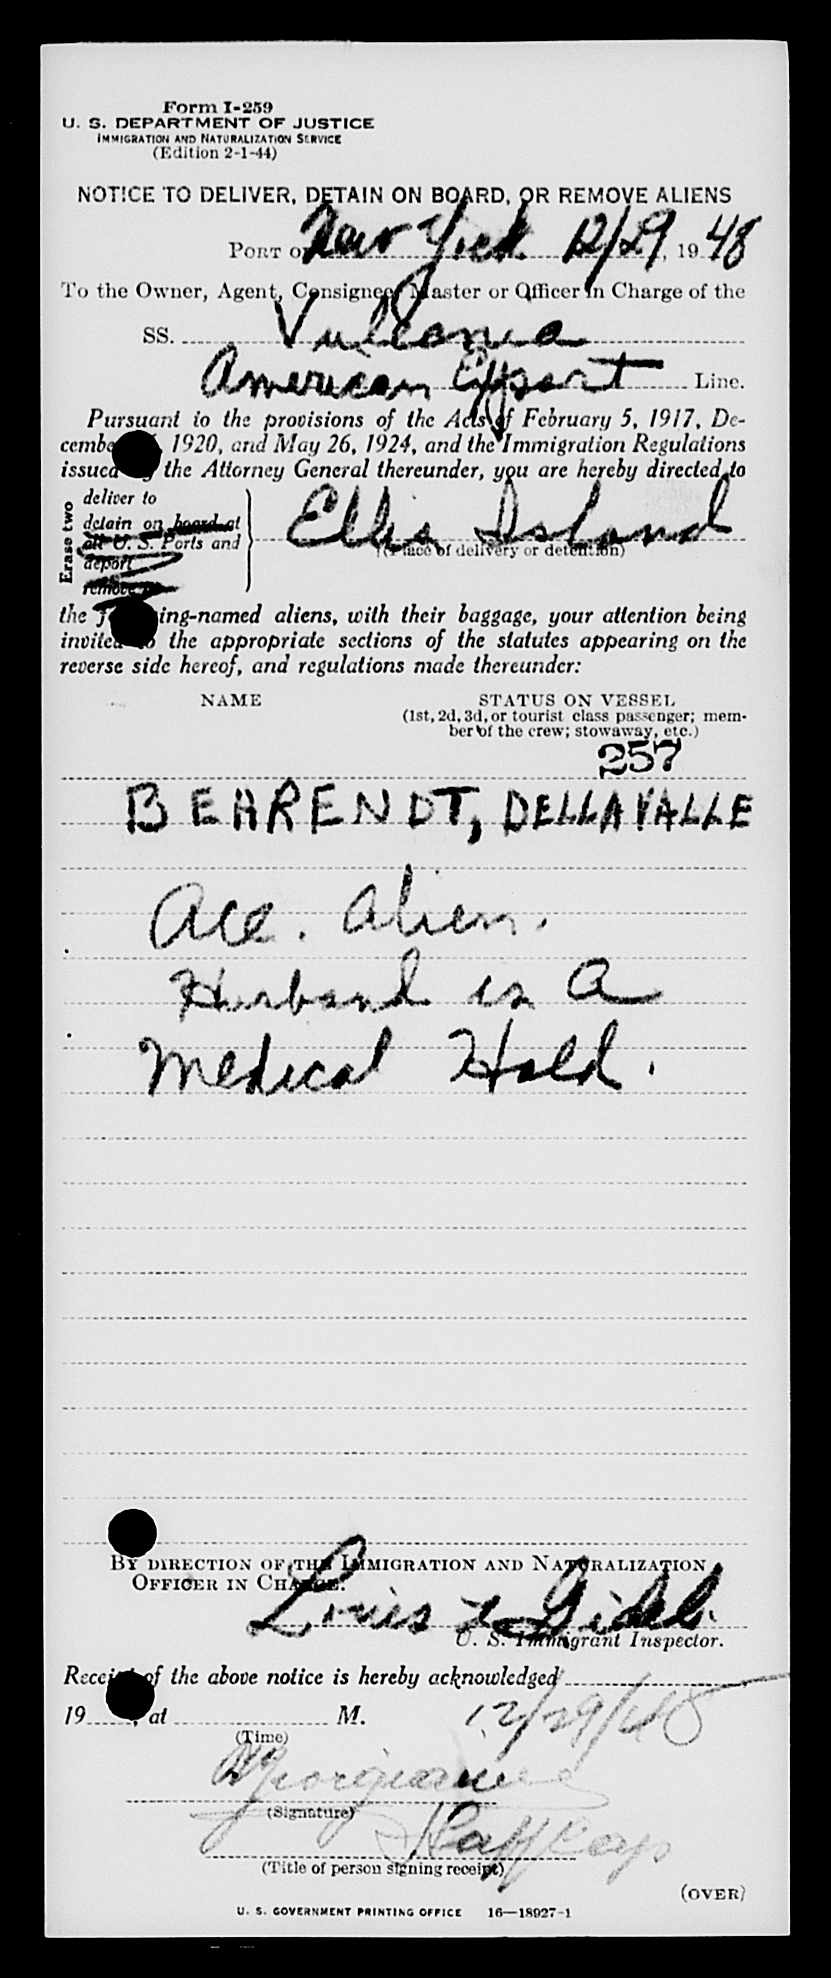 Form I-259
U. S. DEPARTMENT OF JUSTICE
IMMIGRATION AND NATURALIZATION SERVICE
(Edition 2-1-44)
NOTICE TO DELIVER, DETAIN ON BOARD, OR REMOVE ALIENS
PORT OF New York 12/29, 19 48
To the Owner, Agent, Consignee, Master or Officer in Charge of the
SS. Vulcania
American Export Line.
Pursuant to the provisions of the Acts of February 5, 1917, De-
cember 1920, and May 26, 1924, and the Immigration Regulations
issued by the Attorney General thereunder, you are hereby directed to
Erase two
deliver to
detain on board at
all U. S. Ports and
deport
remove to
Ellis Island
(Place of delivery or detention)
the following-named aliens, with their baggage, your attention being
invited to the appropriate sections of the statutes appearing on the
reverse side hereof, and regulations made thereunder:
NAME STATUS ON VESSEL
(1st, 2d, 3d, or tourist class passenger; mem-
ber of the crew; stowaway, etc.)
257
BEHRENDT, DELLAVALLE
Acc. Alien.
Husband is A
Medical Hold.
BY DIRECTION OF THE IMMIGRATION AND NATURALIZATION
OFFICER IN CHARGE:
Louis
U. S. Immigrant Inspector.
Receipt of the above notice is hereby acknowledged
19 , at M. 12/29/48
(Time)
(Signature)
(Title of person signing receipt)
(OVER)
U. S. GOVERNMENT PRINTING OFFICE 16—18927-1